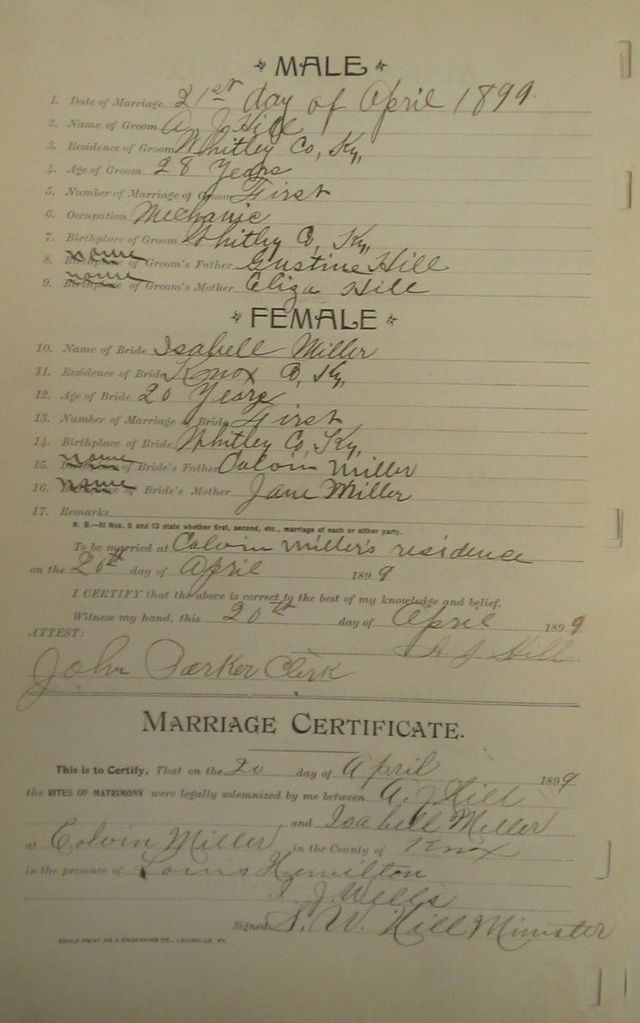 MALE
1. Date of Marriage 21st day of April 1899.
2. Name of Groom A J Hill
3. Residence of Groom Whitley Co, Ky,
4. Age of Groom 28 Years
5. Number of Marriage of Groom First
6. Occupation Mechanic
7. Birthplace of Groom Whitley Co, Ky,
8. name of Groom's Father Gustine Hill
9. name of Groom's Mother Eliza Hill
FEMALE
10. Name of Bride Isabell Miller
11. Residence of Bride Knox Co, Ky,
12. Age of Bride 20 Years
13. Number of Marriage of Bride First
14. Birthplace of Bride Whitley Co, Ky,
15. name of Bride's Father Colvin Miller
16. name of Bride's Mother Jane Miller
17. Remarks
N. B.—At Nos. 5 and 13 state whether first, second, etc., marriage of each or either party.
To be married at Colvin Miller's residence
on the 20th day of April 1899
I CERTIFY that the above is correct to the best of my knowledge and belief.
Witness my hand, this 20th day of April 1899
ATTEST: A J Hill
John Parker Clerk
MARRIAGE CERTIFICATE.
This is to Certify, That on the 20 day of April 1899
the RITES OF MATRIMONY were legally solemnized by me between A. J Hill
and Isabell Miller
at Colvin Miller in the County of Knox
in the presence of Louis Hemilton
I. J. Wells
Signed, S. W. Hill Minister